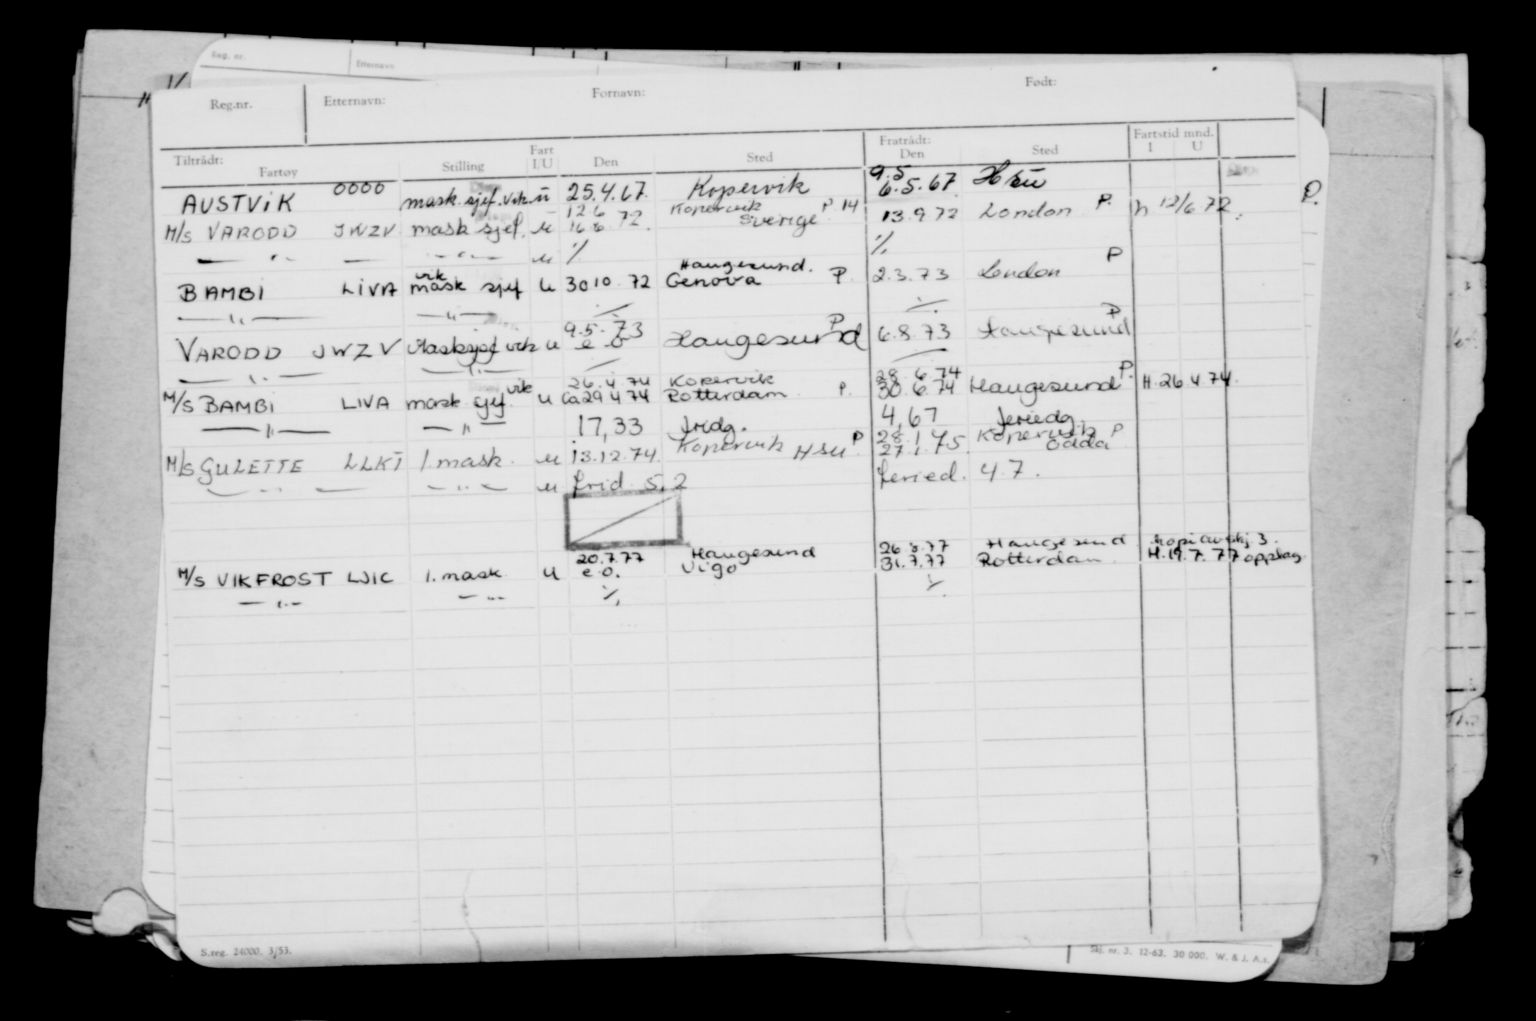 Reg. nr. Etternavn
Reg.nr. Etternavn: Fornavn: Født:
Tiltrådt: Fratrådt: Fartstid mnd.
Fartøy Stilling Fart I/U Den Sted Den Sted I U
9.5
AUSTVIK 0000 mask.sjef.vik. u 25.4.67. Kopervik 6.5.67 P.
12.6 Kopervik
M/S VARODD JWZV mask sjef. u 16.6.72. Sverige P. 14 13.9.72 London P. h 12/6 72.
— " — — " — u ./. ./.
vik Haugesund.
BAMBI LIVA mask sjef u 30 10. 72 Genova P. 2.3.73 London P
— " — — " — ./.
9.5.73
VARODD JWZV Masksjef vik u e o Haugesund P 6.8.73 Haugesund P
— " — — " —
vik 26.4.74 Kopervik 28.6.74
M/S BAMBI LIVA mask sjef u Ca 29 4 74 Rotterdam P. 30.6.74 Haugesund P. H. 26 4 74.
— " — — " — 17,33 fridg. 4,67 feriedg.
Kopervik 28.1.75 Kopervik P
M/S GULETTE LLKI 1. mask. u 13.12.74. HSU P 27.1.75. Odda
— " — — " — u frid 5,2 feried. 4.7.
20.7.77 Haugesund 26.8.77 Haugesund kopi av skj. 3.
M/S VIKFROST LJIC 1. mask u e.o. Vigo 31.7.77 Rotterdam. H. 19.7.77 opplag
— " — — " — ./. ./.
S.reg. 24000. 3/53.
Skj. nr. 3. 12-63. 30 000. W. & J. A.s.